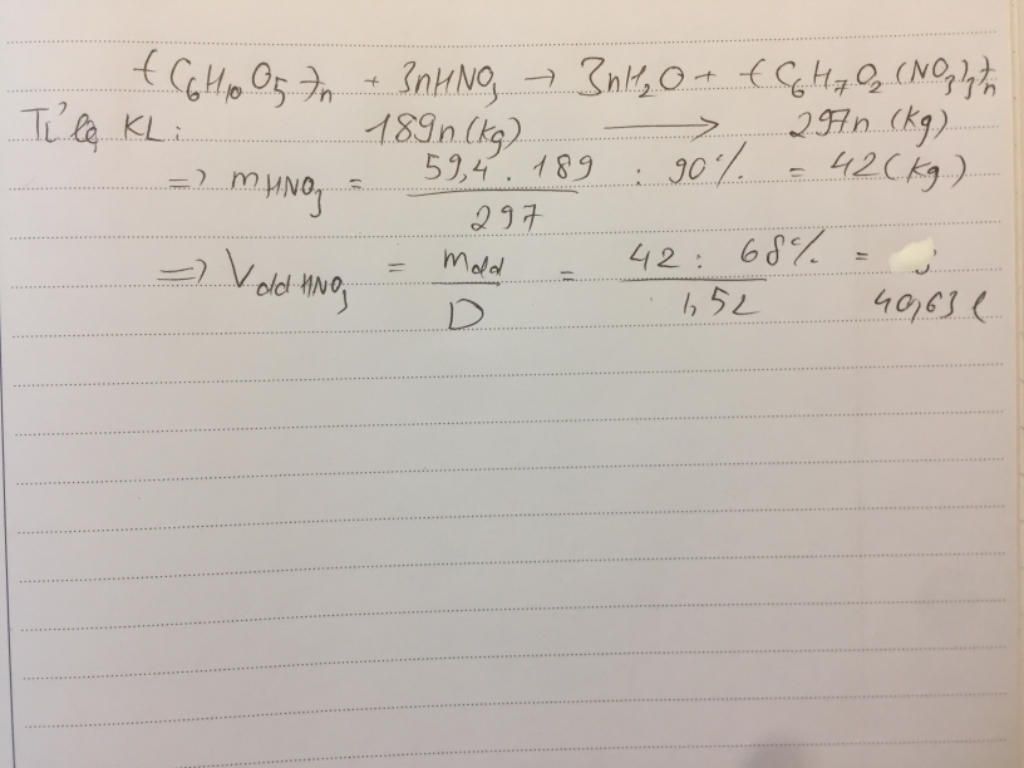 -(C₆H₁₀O₅)-ₙ + 3nHNO₃ → 3nH₂O + -(C₆H₇O₂(NO₃)₃)-ₙ
Tỉ lệ KL: 189n (kg) → 297n (kg)
=> mHNO₃ = 59,4 . 189 / 297 : 90% = 42 (kg)
=> Vdd HNO₃ = mdd / D = 42 : 68% / 1,52 = 40,63 l